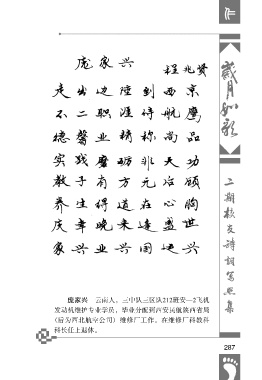 庞家兴
程兆贤
走出边陲到西京
不二职涯待航鹰
德馨业精称尚品
实践磨砺非天功
教子有方元后颐
养生得道在心胸
庆幸晚来逢盛世
家兴业兴国运兴
庞家兴 云南人，三中队三区队212班安—2飞机
发动机维护专业学员，毕业分配到西安民航陕西省局
（后为西北航空公司）维修厂工作，在维修厂科教科
科长任上退休。
岁月如歌
二期校友诗词写照集
287